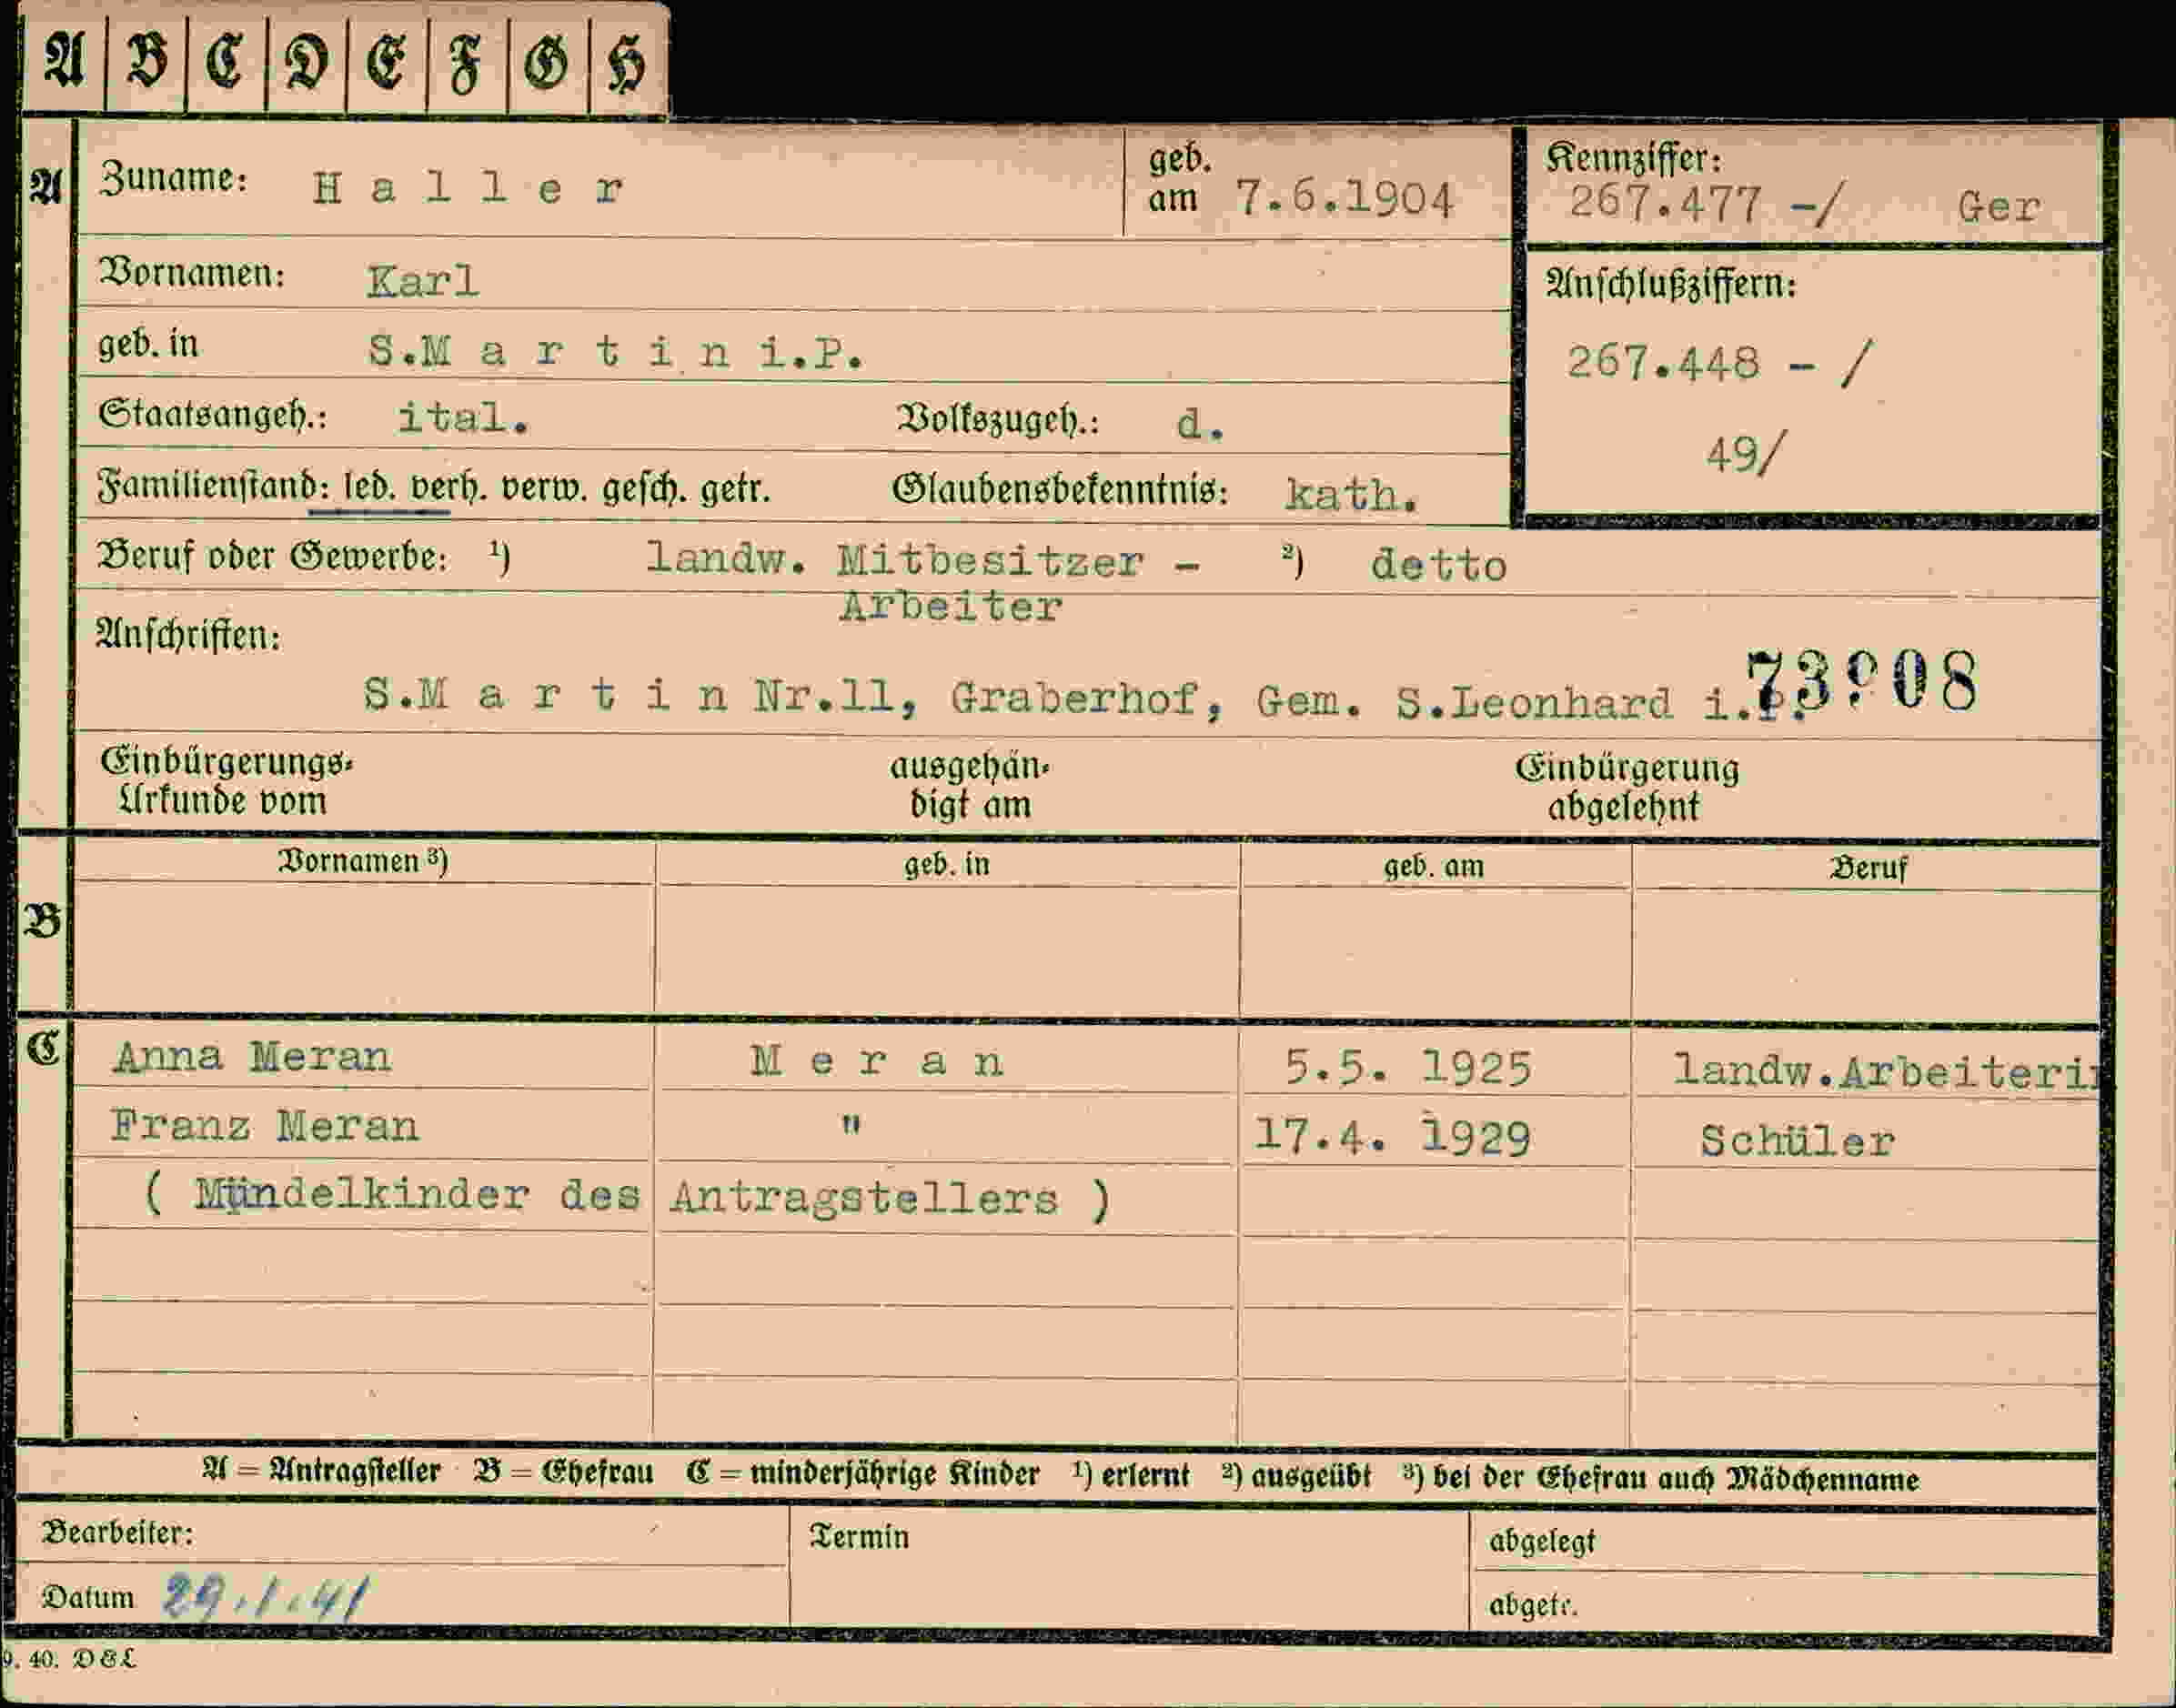 A B C D E F G H
A Zuname: H a l l e r geb. am 7.6.1904
Kennziffer: 267.477 -/ Ger
Vornamen: Karl
Anschlußziffern:
geb. in S.M a r t i n i.P.
267.448 - /
Staatsangeh.: ital. Volkszugeh.: d.
49/
Familienstand: led. verh. verw. gesch. getr. Glaubensbekenntnis: kath.
Beruf oder Gewerbe: ¹) landw. Mitbesitzer - ²) detto
Arbeiter
Anschriften:
S.M a r t i n Nr.11, Graberhof, Gem. S.Leonhard i.P.
Einbürgerungs-
Urkunde vom
ausgehän-
digt am
Einbürgerung
abgelehnt
Vornamen ³) geb. in geb. am Beruf
B
C Anna Meran M e r a n 5.5. 1925 landw.Arbeiterin
Franz Meran " 17.4. 1929 Schüler
( Mündelkinder des Antragstellers )
A = Antragsteller B = Ehefrau C = minderjährige Kinder ¹) erlernt ²) ausgeübt ³) bei der Ehefrau auch Mädchenname
Bearbeiter: Termin abgelegt
Datum 29.1.41 abgetr.
9. 40. DEL